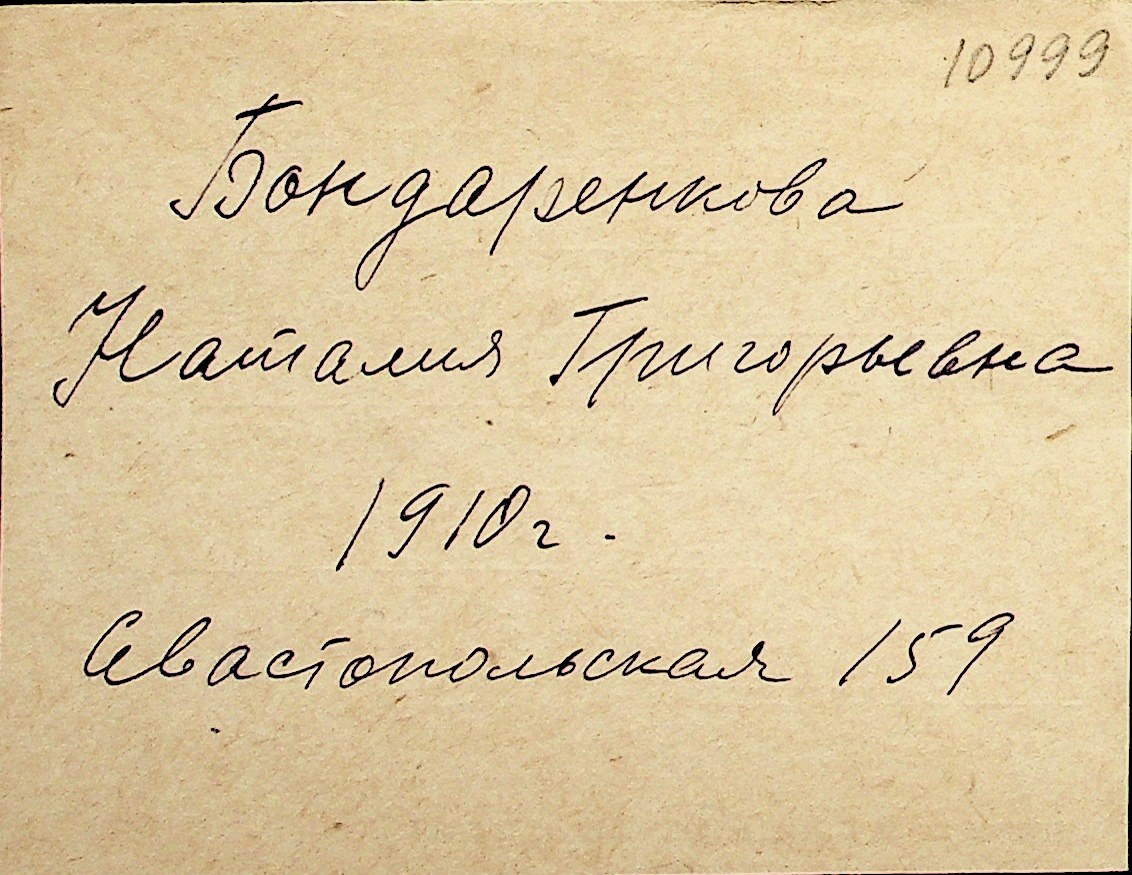 10999
Бондаренкова
Наталия Григорьевна
1910г.
Севастопольская 159